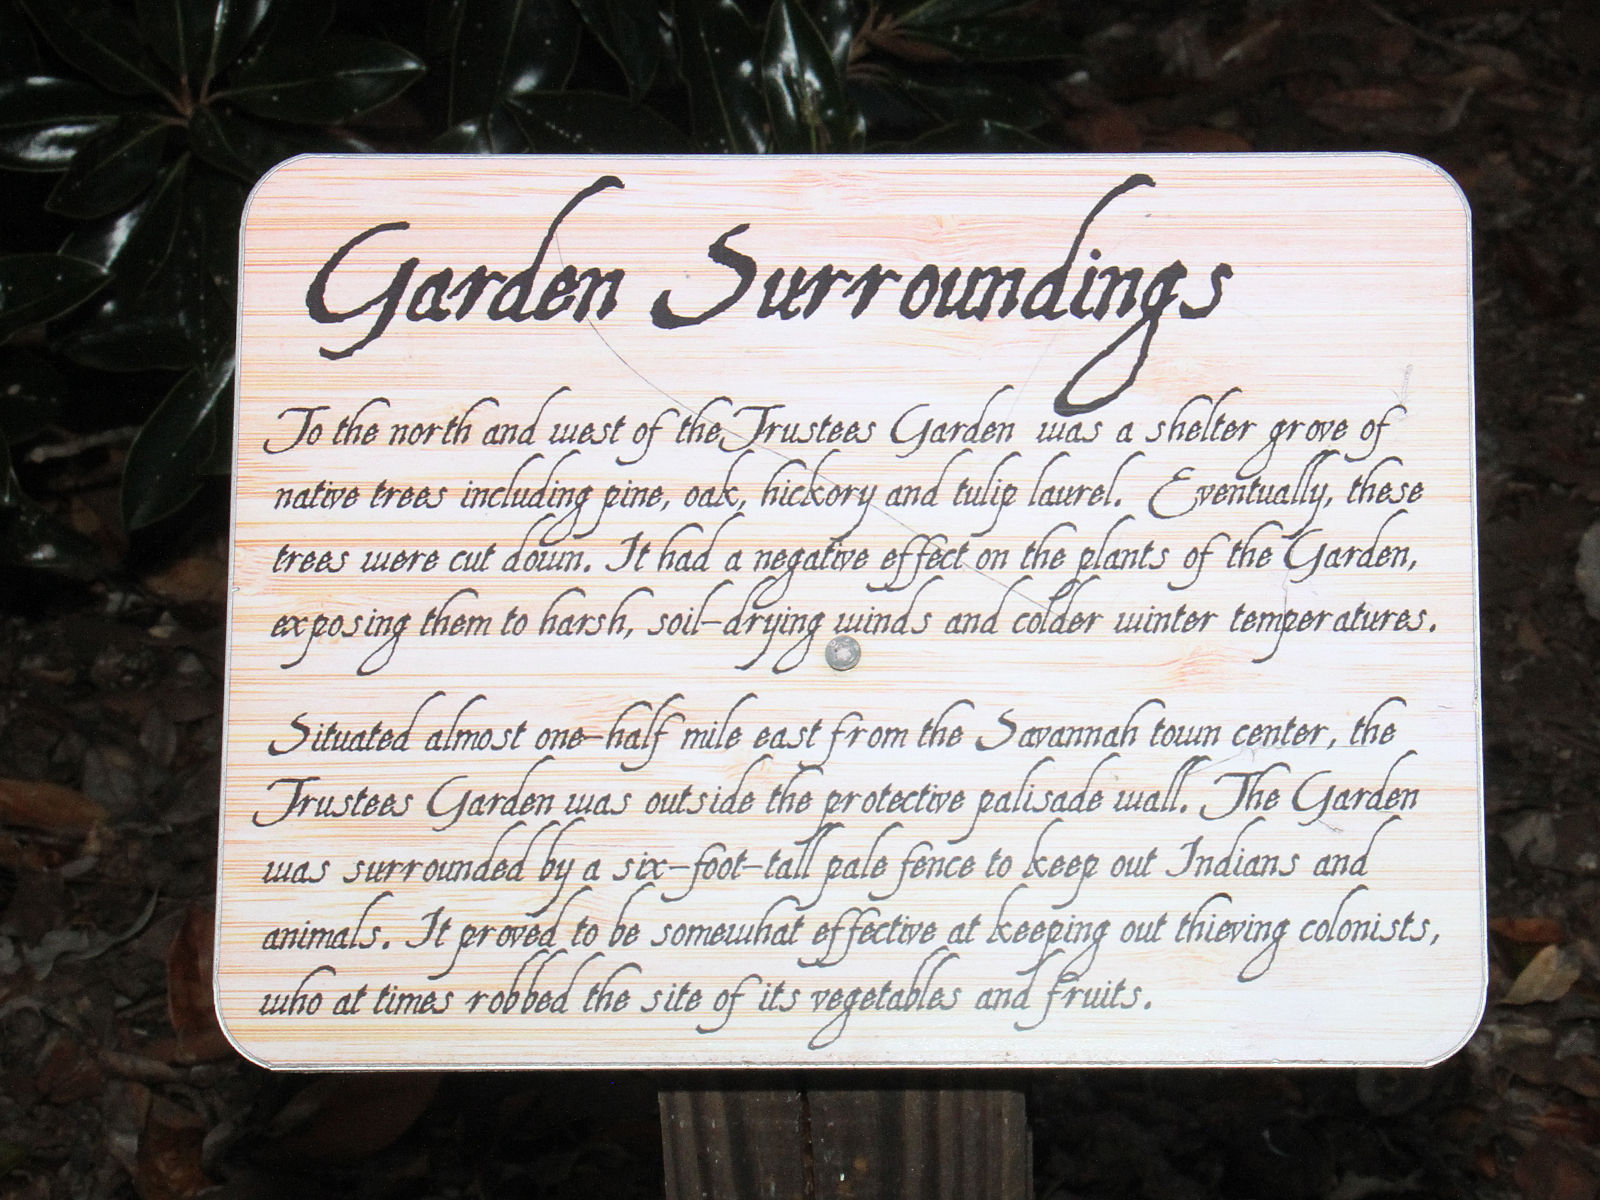 Garden Surroundings
To the north and west of the Trustees Garden was a shelter grove of
native trees including pine, oak, hickory and tulip laurel. Eventually, these
trees were cut down. It had a negative effect on the plants of the Garden,
exposing them to harsh, soil-drying winds and colder winter temperatures.
Situated almost one-half mile east from the Savannah town center, the
Trustees Garden was outside the protective palisade wall. The Garden
was surrounded by a six-foot-tall pale fence to keep out Indians and
animals. It proved to be somewhat effective at keeping out thieving colonists,
who at times robbed the site of its vegetables and fruits.